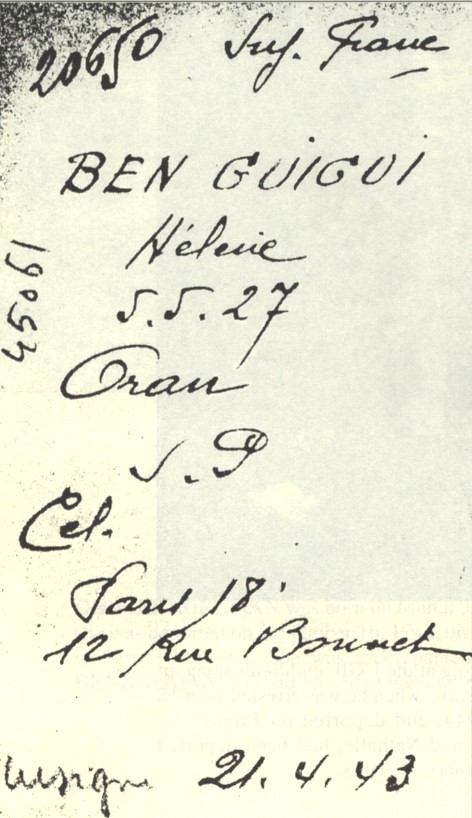 20650 Suj. Franc
BEN GUIGUI
Hélène
45061
5.5.27
Oran
S.P
Cel.
Paris 18e
12 Rue Bonnet
21.4.43